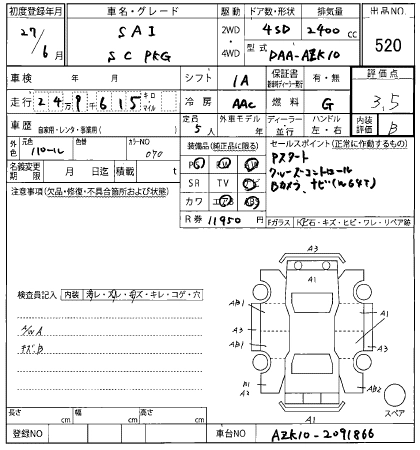 初度登録年月 車名・グレード 駆動 ドア数・形状 排気量 出品NO
27/6月 SAI 2WD 4SD 2400cc 520
SC PKG 4WD 型式 DAA-AZK10
車検 年 月 シフト IA 保証書 有・無 評価点
走行 24万9千615 キロ・マイル 冷房 AAC 燃料 G 3.5
車歴 自家用・レンタ・事業用( ) 定員 5人 外車モデル 年 ディーラー・並行 ハンドル 左・右 内装評価 B
外色 元色 パール 色替 カラーNO 070 装備品(純正品に限る) セールスポイント(正常に作動するもの)
名義変更期限 月 日迄 積載 t PS PW Pスタート
SR TV ナビ クルーズコントロール
注意事項(欠品・修復・不具合箇所および状態) カワ エアB ABS Bカメラ、ナビ(W64T)
R券 11950円 Fガラス ト石・キズ・ヒビ・ワレ・リペア跡
検査員記入 内装 汚レ・スレ・キズ・キレ・コゲ・穴
A/W A
キズ B
A3
A1
AB1 A1
A3 A3
AB1 A1
B1 A2 AB2
A1
スペア
長さ cm 幅 cm 高さ cm
登録NO 車台NO AZK10-2091866